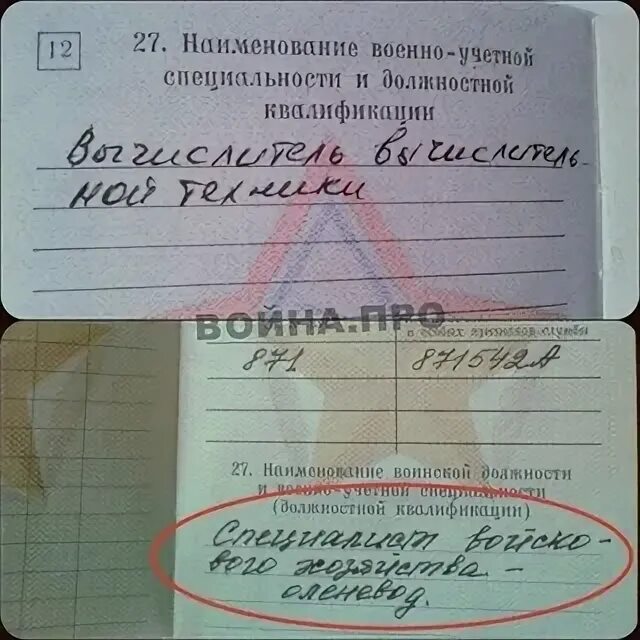 12
27. Наименование военно-учетной
специальности и должностной
квалификации
Вычислитель вычислитель-
ной техники
ВОЙНА.ПРО
871 871542А
27. Наименование воинской должности
и военно-учетной специальности
(должностной квалификации)
Специалист войско-
вого хозяйства -
оленевод.